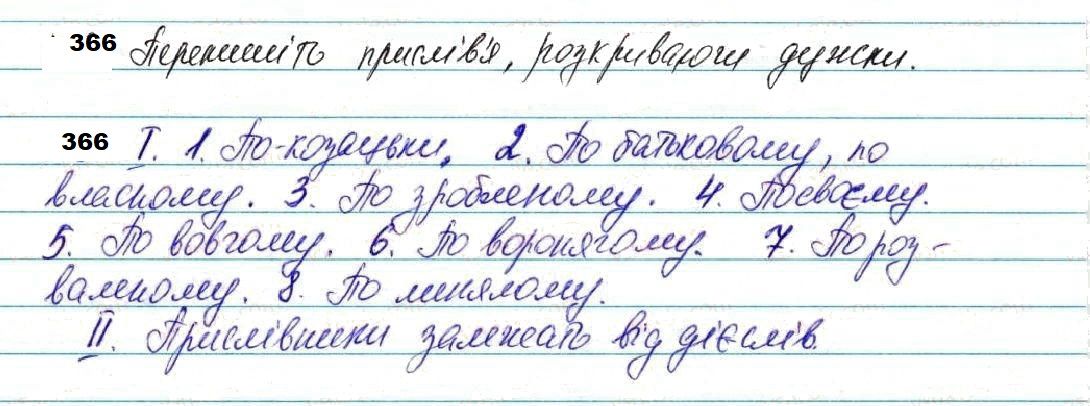 366 Перепишіть прислів'я, розкриваючи дужки.
366 І. 1. По-козацьки. 2. По батьковому, по
власному. 3. По зробленому. 4. Посвоєму.
5. По вовчому. 6. По воронячому. 7. По роз-
валеному. 8. По линялому.
ІІ. Прислівники залежать від дієслів.